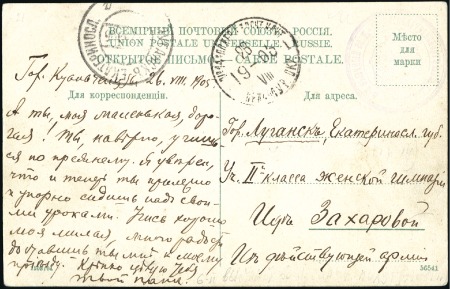 ВСЕМІРНЫЙ ПОЧТОВЫЙ СОЮЗЪ. РОССІЯ.
UNION POSTALE UNIVERSELLE. RUSSIE.
ОТКРЫТОЕ ПИСЬМО — CARTE POSTALE.
Мѣсто
для
марки
Для корреспонденціи.
Для адреса.
Гор. 26. VIII. 1905
А ты, моя маленькая, доро-
гая! Ты, навѣрно, учишь
ся по прежнему. Я увѣрен,
что и теперь ты прилежно
и упорно сидишь надъ свои-
ми уроками. Учись хорошо
моя милая, много радости
доставишь ты мнѣ к моему
пріѣзду. Крѣпко цѣлую тебя
Твой папа.
Гор. Луганскъ, Екатериносл. губ.
Уч. II класса женской гимназіи
Идѣ Захаровой
Изъ дѣйствующей арміи
36541